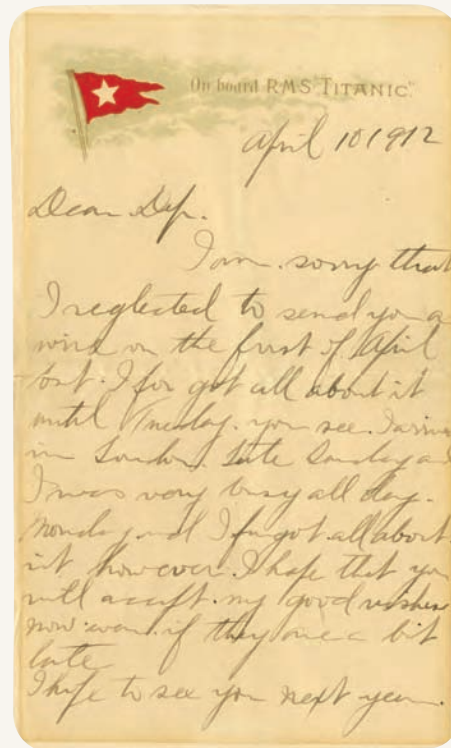 On board RMS "TITANIC".
April 10 1912
Dear
I am. sorry that
I neglected to send you a
wire on the first of April
but. I for got all about it
until Tuesday. you see. I arrive
in London. late Sunday a
I was very busy all day.
Monday and I forgot. all about
it however. I hope that you
will accept. my good wishes
now even. if they are a bit
late
I hope to see you next year.